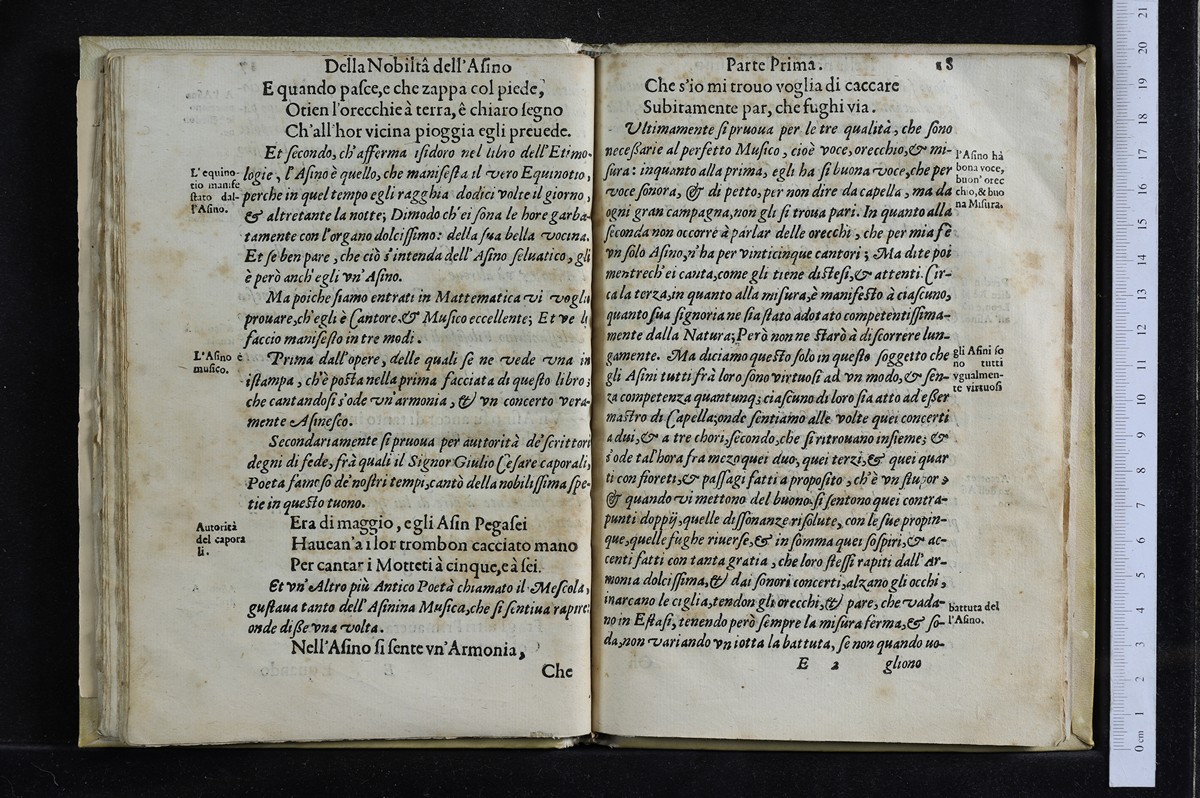 Della Nobiltâ dell'Asino
E quando pasce, e che zappa col piede,
O tien l'orecchie à terra, ê chiaro segno
Ch'all'hor vicina pioggia egli preuede.
Et secondo, ch'afferma isidoro nel libro dell'Etimo-
logie, l'Asino è quello, che manifesta il vero Equinotio,
perche in quel tempo egli ragghia dodici volte il giorno,
& altretante la notte; Dimodo ch'ei sona le hore garba-
tamente con l'organo dolcissimo: della sua bella vocina.
Et se ben pare, che ciò s'intenda dell'Asino seluatico, gli
è però anch'egli vn'Asino.
L'equino-
tio manife
stato dal-
l'Asino.
Ma poiche siamo entrati in Mattematica vi vogli
prouare, ch'egli è Cantore, & Musico eccellente; Et ve li
faccio manifesto in tre modi.
Prima dall'opere, delle quali se ne vede vna in
istampa, ch'è posta nella prima facciata di questo libro;
che cantandosi s'ode vn'armonia, & vn concerto vera-
mente Asinesco.
L'Asino è
musico.
Secondariamente si pruoua per autorità de'scrittori
degni di fede, frà quali il Signor Giulio Cesare caporali,
Poeta famoso de'nostri tempi, cantò della nobilissima spe-
tie in questo tuono.
Era di maggio, e gli Asin Pegasei
Hauean'a i lor trombon cacciato mano
Per cantar i Motteti à cinque, e à sei.
Autorità
del capora
li.
Et vn'Altro più Antico Poetà chiamato il Mescola,
gustaua tanto dell'Asinina Musica, che si sentiua rapire:
onde disse vna volta.
Nell'Asino si sente vn'Armonia,
Che
Parte Prima. 18
Che s'io mi trouo voglia di caccare
Subitamente par, che fughi via.
Vltimamente si pruoua per le tre qualità, che sono
necessarie al perfetto Musico, cioè voce, orecchio, & mi-
sura: inquanto alla prima, egli ha si buona voce, che per
voce sonora, & di petto, per non dire da capella, ma da
ogni gran campagna, non gli si troua pari. In quanto alla
seconda non occorre à parlar delle orecchi, che per mia fè
vn solo Asino, n'ha per vinticinque cantori; Ma dite poi
mentrech'ei canta, come gli tiene distesi, & attenti. Cir-
ca la terza, in quanto alla misura, è manifesto à ciascuno,
quanto sua signoria ne sia stato adotato competentissima-
mente dalla Natura; Però non ne starò à discorrere lun-
gamente. Ma diciamo questo solo in questo soggetto che
gli Asini tutti frà loro sono virtuosi ad vn modo, & sen-
za competenza quantunq; ciascuno di loro sia atto ad esser
mastro di Capella; onde sentiamo alle volte quei concerti
a dui, & a tre chori, secondo, che si ritrouano insieme; &
s'ode tal'hora fra mezo quei duo, quei terzi, & quei quar
ti con fioreti, & passagi fatti a proposito, ch'è vn stupor,
& quando vi mettono del buono. si sentono quei contra-
punti doppij, quelle dissonanze risolute, con le sue propin-
que, quelle fughe riuerse, & in somma quei sospiri, & ac-
centi fatti con tanta gratia, che loro stessi rapiti dall'Ar-
monia dolcissima, & dai sonori concerti, alzano gli occhi,
inarcano le ciglia, tendon gli orecchi, & pare, che vada-
no in Estasi, tenendo però sempre la misura ferma, & so-
da, non variando vn iotta la battuta, se non quando uo-
l'Asino hà
bona voce,
buon'orec
chio, & buo
na Misura.
gli Asini so
no tutti
vgualmen-
te virtuosi
battuta del
l'Asino.
E 2 gliono